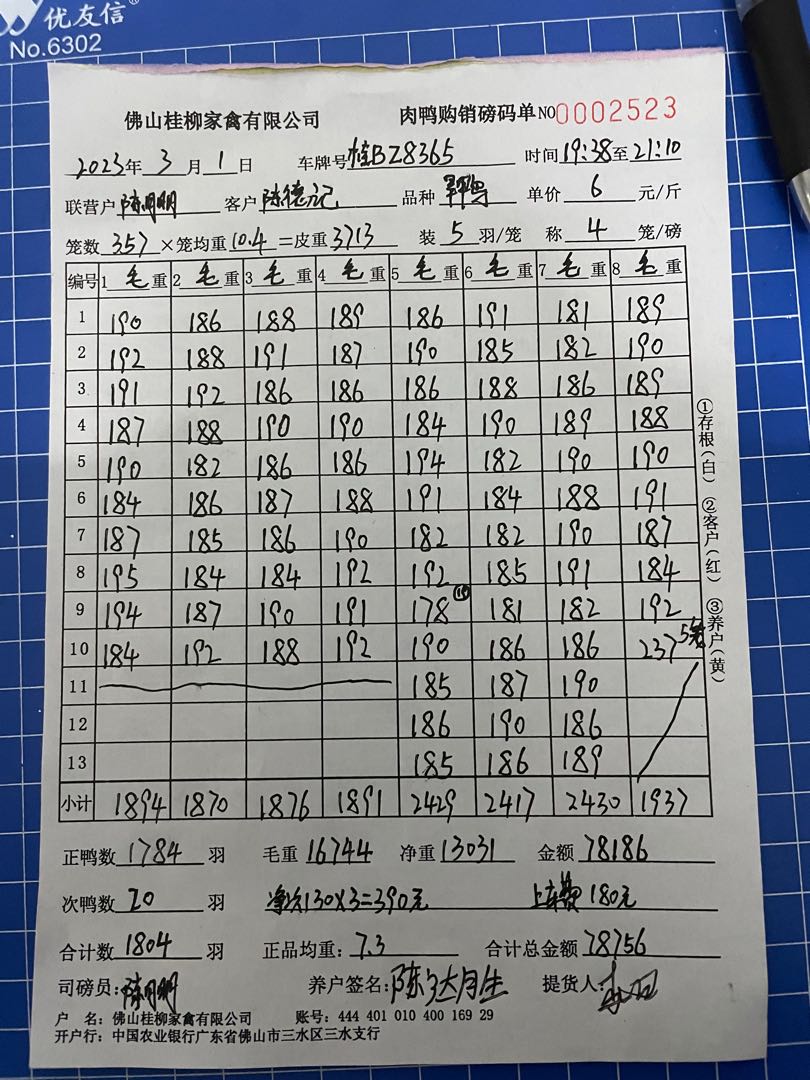 优友信
No.6302
佛山桂柳家禽有限公司 肉鸭购销磅码单 NO 0002523
2023年 3月 1日 车牌号 桂BZ8365 时间 19:38至21:10
联营户 陈明 客户 陈德记 品种 单价 6 元/斤
笼数 357 ×笼均重 10.4 =皮重 3713 装 5 羽/笼 称 4 笼/磅
编号 1 毛重 2 毛重 3 毛重 4 毛重 5 毛重 6 毛重 7 毛重 8 毛重
1 190 186 188 189 186 191 181 189
2 192 188 191 187 190 185 182 190
3 191 192 186 186 186 188 186 189
4 187 188 190 190 184 190 189 188
5 190 182 186 186 194 182 190 190
6 184 186 187 188 191 184 188 191
7 187 185 186 190 182 182 190 187
8 195 184 184 192 192 185 191 184
9 194 187 190 191 178 181 182 192
10 184 192 188 192 190 186 186 237 5笼
11 185 187 190
12 186 190 186
13 185 186 189
小计 1894 1870 1876 1891 2429 2417 2430 1937
正鸭数 1784 羽 毛重 16744 净重 13031 金额 78186
次鸭数 20 羽 净次130×3=390元 上车费 180元
合计数 1804 羽 正品均重: 7.3 合计总金额 78756
司磅员: 陈明 养户签名: 陈达月生 提货人:
户 名: 佛山桂柳家禽有限公司 账号: 444 401 010 400 169 29
开户行: 中国农业银行广东省佛山市三水区三水支行
①存根(白) ②客户(红) ③养户(黄)